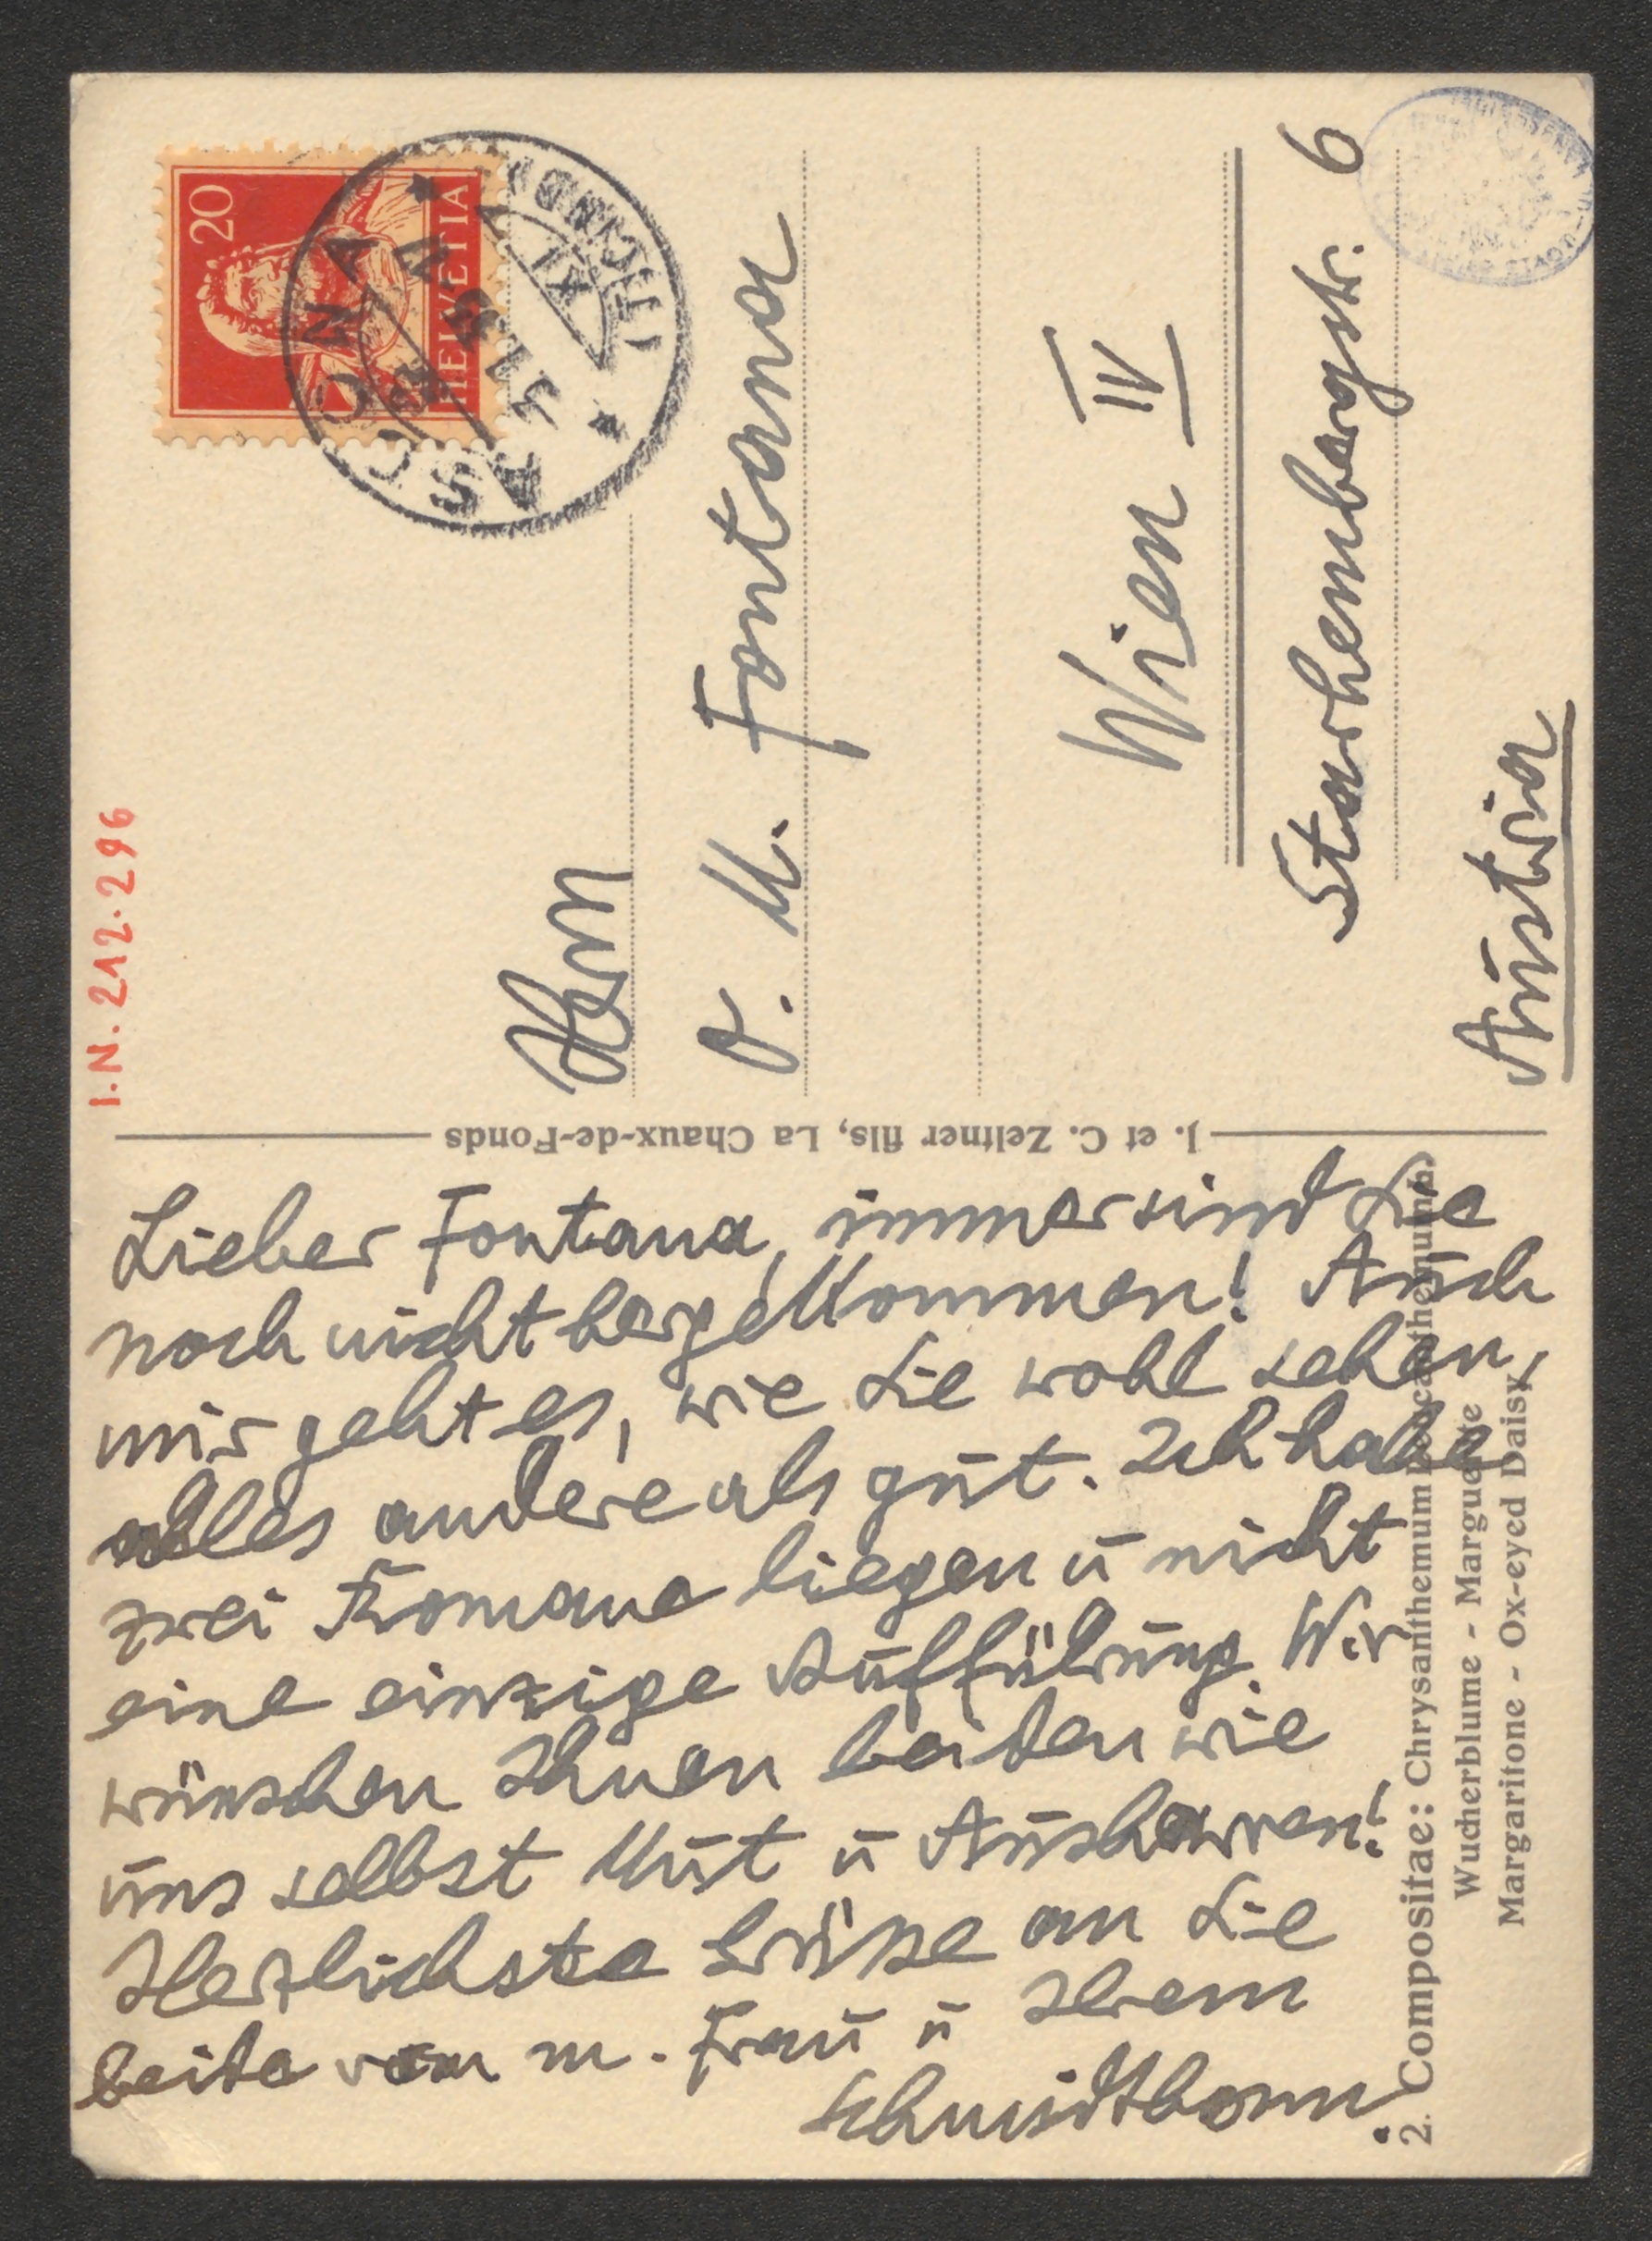 I.N. 212.296
20
HELVETIA
ASCONA
Herrn
O. M. Fontana
Wien IV
Starhembergstr. 6
Austria
J. et C. Zeltner fils, La Chaux-de-Fonds
Lieber Fontana, immer sind Sie
noch nicht hergekommen! Auch
mir geht es, wie Sie wohl sehen,
alles andere als gut. Ich habe
zwei Romane liegen u nicht
eine einzige Aufführung. Wir
wünschen Ihnen beiden wie
uns selbst Mut u Ausharren!
Herzlichste Grüsse an Sie
beide von m. Frau u Ihrem
Schmidtbonn.
2. Compositae: Chrysanthemum Leucanthemum
Wucherblume - Marguerite
Margaritone - Ox-eyed Daisy